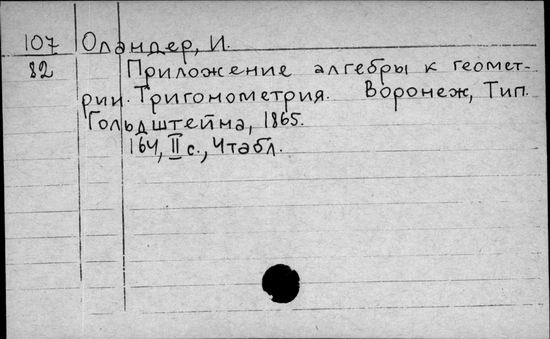 107 Оландер, И.
82 Приложение алгебры к геомет-
рии. Тригонометрия. Воронеж, Тип.
Гольдштейна, 1865.
164, II с., 4 табл.